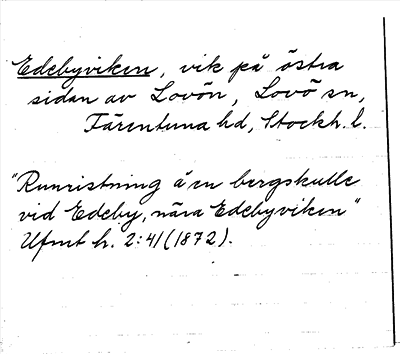 Edebyviken, vik på östra
sidan av Lovön, Lovö sn,
Färentuna hd, Stockh. l.
"Runristning å en bergskulle
vid Edeby, nära Edebyviken"
Ufmt h. 2:41 (1872).